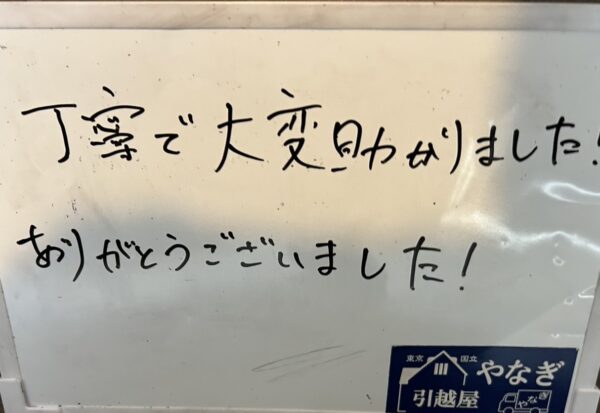 丁寧で大変助かりました!
ありがとうございました!
東京 国立
やなぎ
引越屋
やなぎ